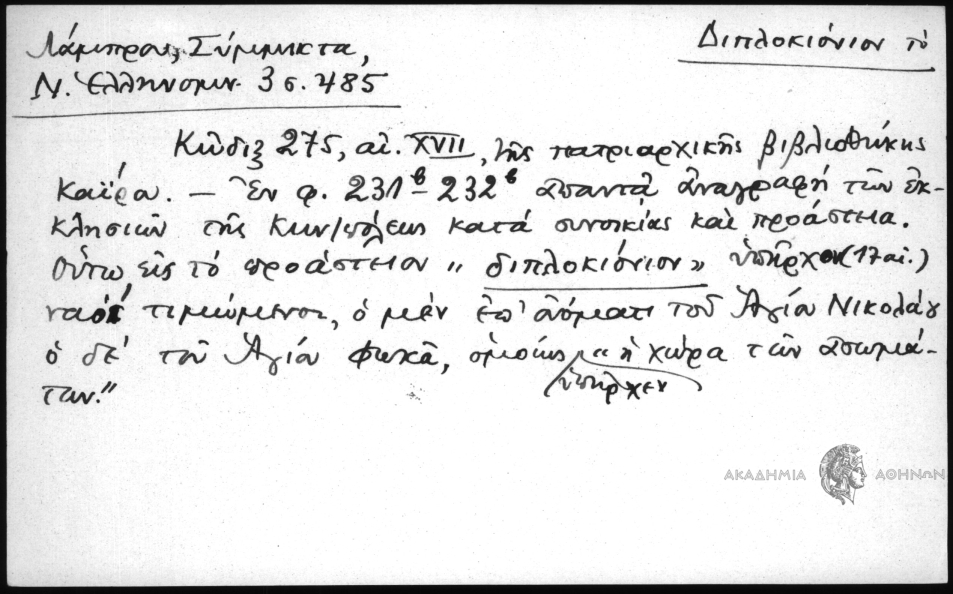 Λάμπρου, Σύμμικτα,
Ν. Ἑλληνομν. 3 σ. 485
Διπλοκιόνιον τὸ
Κῶδιξ 275, αἰ. XVII, τῆς πατριαρχικῆς βιβλιοθήκης
Καΐρου. — Ἐν φ. 231β–232β ἀπαντᾷ ἀναγραφή τῶν ἐκ-
κλησιῶν τῆς Κων/πόλεως κατά συνοικίας καὶ προάστεια.
Οὕτω εἰς τὸ προάστειον „διπλοκιόνιον” ὑπῆρχον (17 αἰ.)
ναοί τιμώμενοι, ὁ μέν ἐπ' ὀνόματι τοῦ Ἁγίου Νικολάου
ὁ δέ τοῦ Ἁγίου Φωκᾶ, ὁμοίως ὑπῆρχεν „ἡ χώρα τῶν ἀσωμά-
των.”
ΑΚΑΔΗΜΙΑ ΑΘΗΝΩΝ